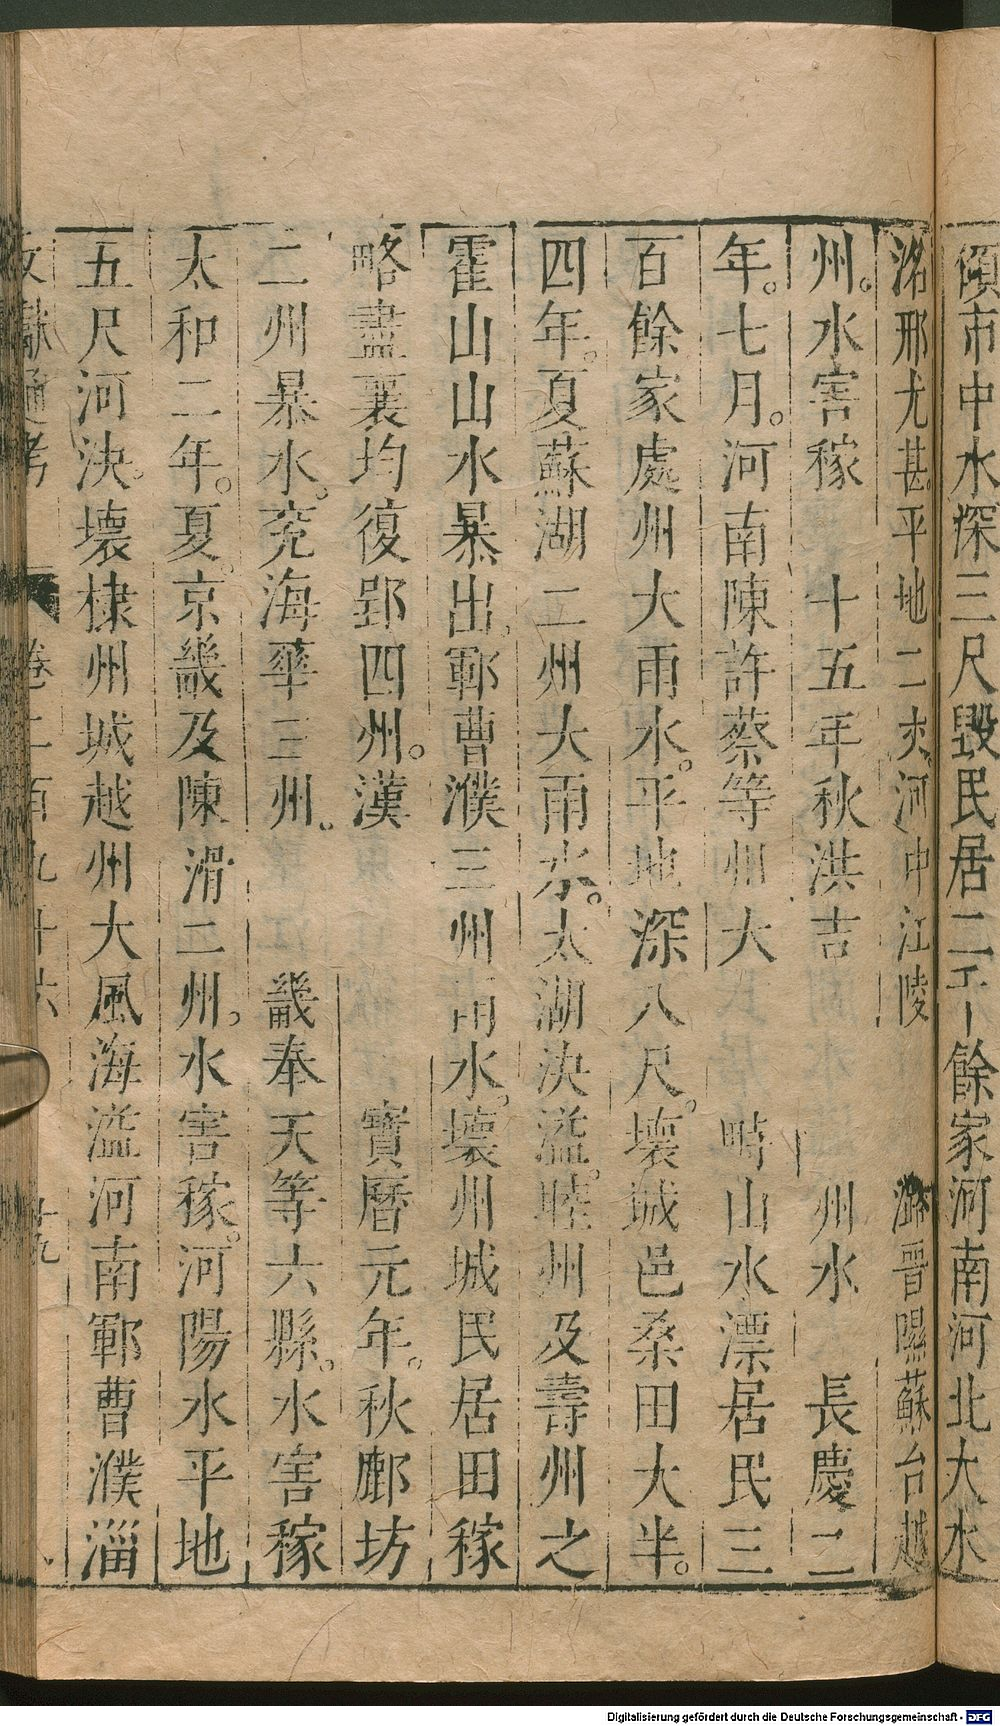 傾市中水深三尺毀民居二千餘家河南河北大水
洺邢尤甚平地二丈河中江陵　潞晉隰蘇台越
州。水害稼　十五年秋洪吉　州水　長慶二
年。七月。河南陳許蔡等州大　山水漂居民三
百餘家處州大雨水。平地深八尺。壞城邑桑田大半。
四年。夏蘇湖二州大雨水。太湖決溢。睦州及壽州之
霍山山水暴出。鄆曹濮三州雨水。壞州城民居田稼
略盡襄均復郢四州。漢　寶曆元年。秋鄜坊
二州暴水。兖海華三州。　畿奉天等六縣。水害稼
太和二年。夏。京畿及陳滑二州。水害稼。河陽水平地
五尺河決。壞棣州城越州大風海溢河南鄆曹濮淄
文獻通考　卷二百九十六　十九
Digitalisierung gefördert durch die Deutsche Forschungsgemeinschaft - DFG